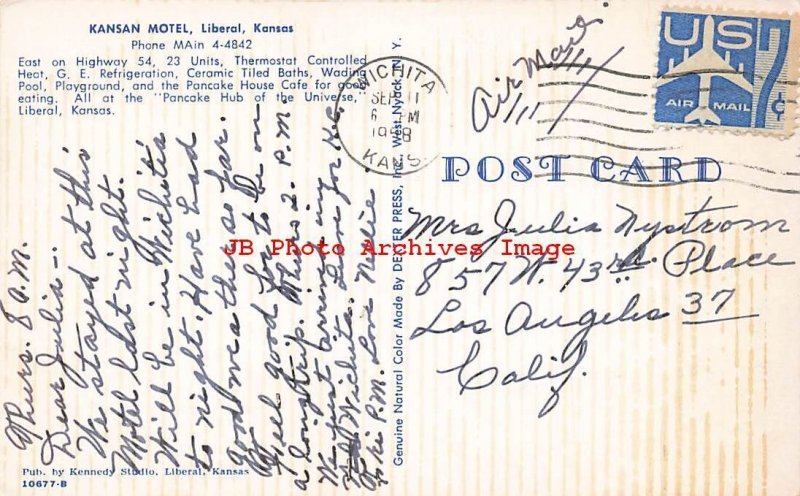 KANSAN MOTEL, Liberal, Kansas
Phone MAin 4-4842
East on Highway 54, 23 Units, Thermostat Controlled
Heat, G. E. Refrigeration, Ceramic Tiled Baths, Wading
Pool, Playground, and the Pancake House Cafe for good
eating. All at the "Pancake Hub of the Universe,"
Liberal, Kansas.
Thurs. 8 A.M.
Dear Julia -:
We stayed at this
Motel last night.
Will be in Wichita
to night. Have had
good weather so far.
Feel good for to be on
a long trip. Thurs 2. P.M.
We just arrived in
Wichita. Leave for K.C.
P.M. Love Nellie.
Pub. by Kennedy Studio, Liberal, Kansas
10677-B
Genuine Natural Color Made By DEXTER PRESS, Inc., West Nyack, N. Y.
WICHITA
SEP 11
6 PM
1958
KANS
Air Mail
US
7¢
AIR MAIL
POST CARD
Mrs Julia Nystrom
857 W. 43rd. Place
Los Angeles 37
Calif.
JB Photo Archives Image